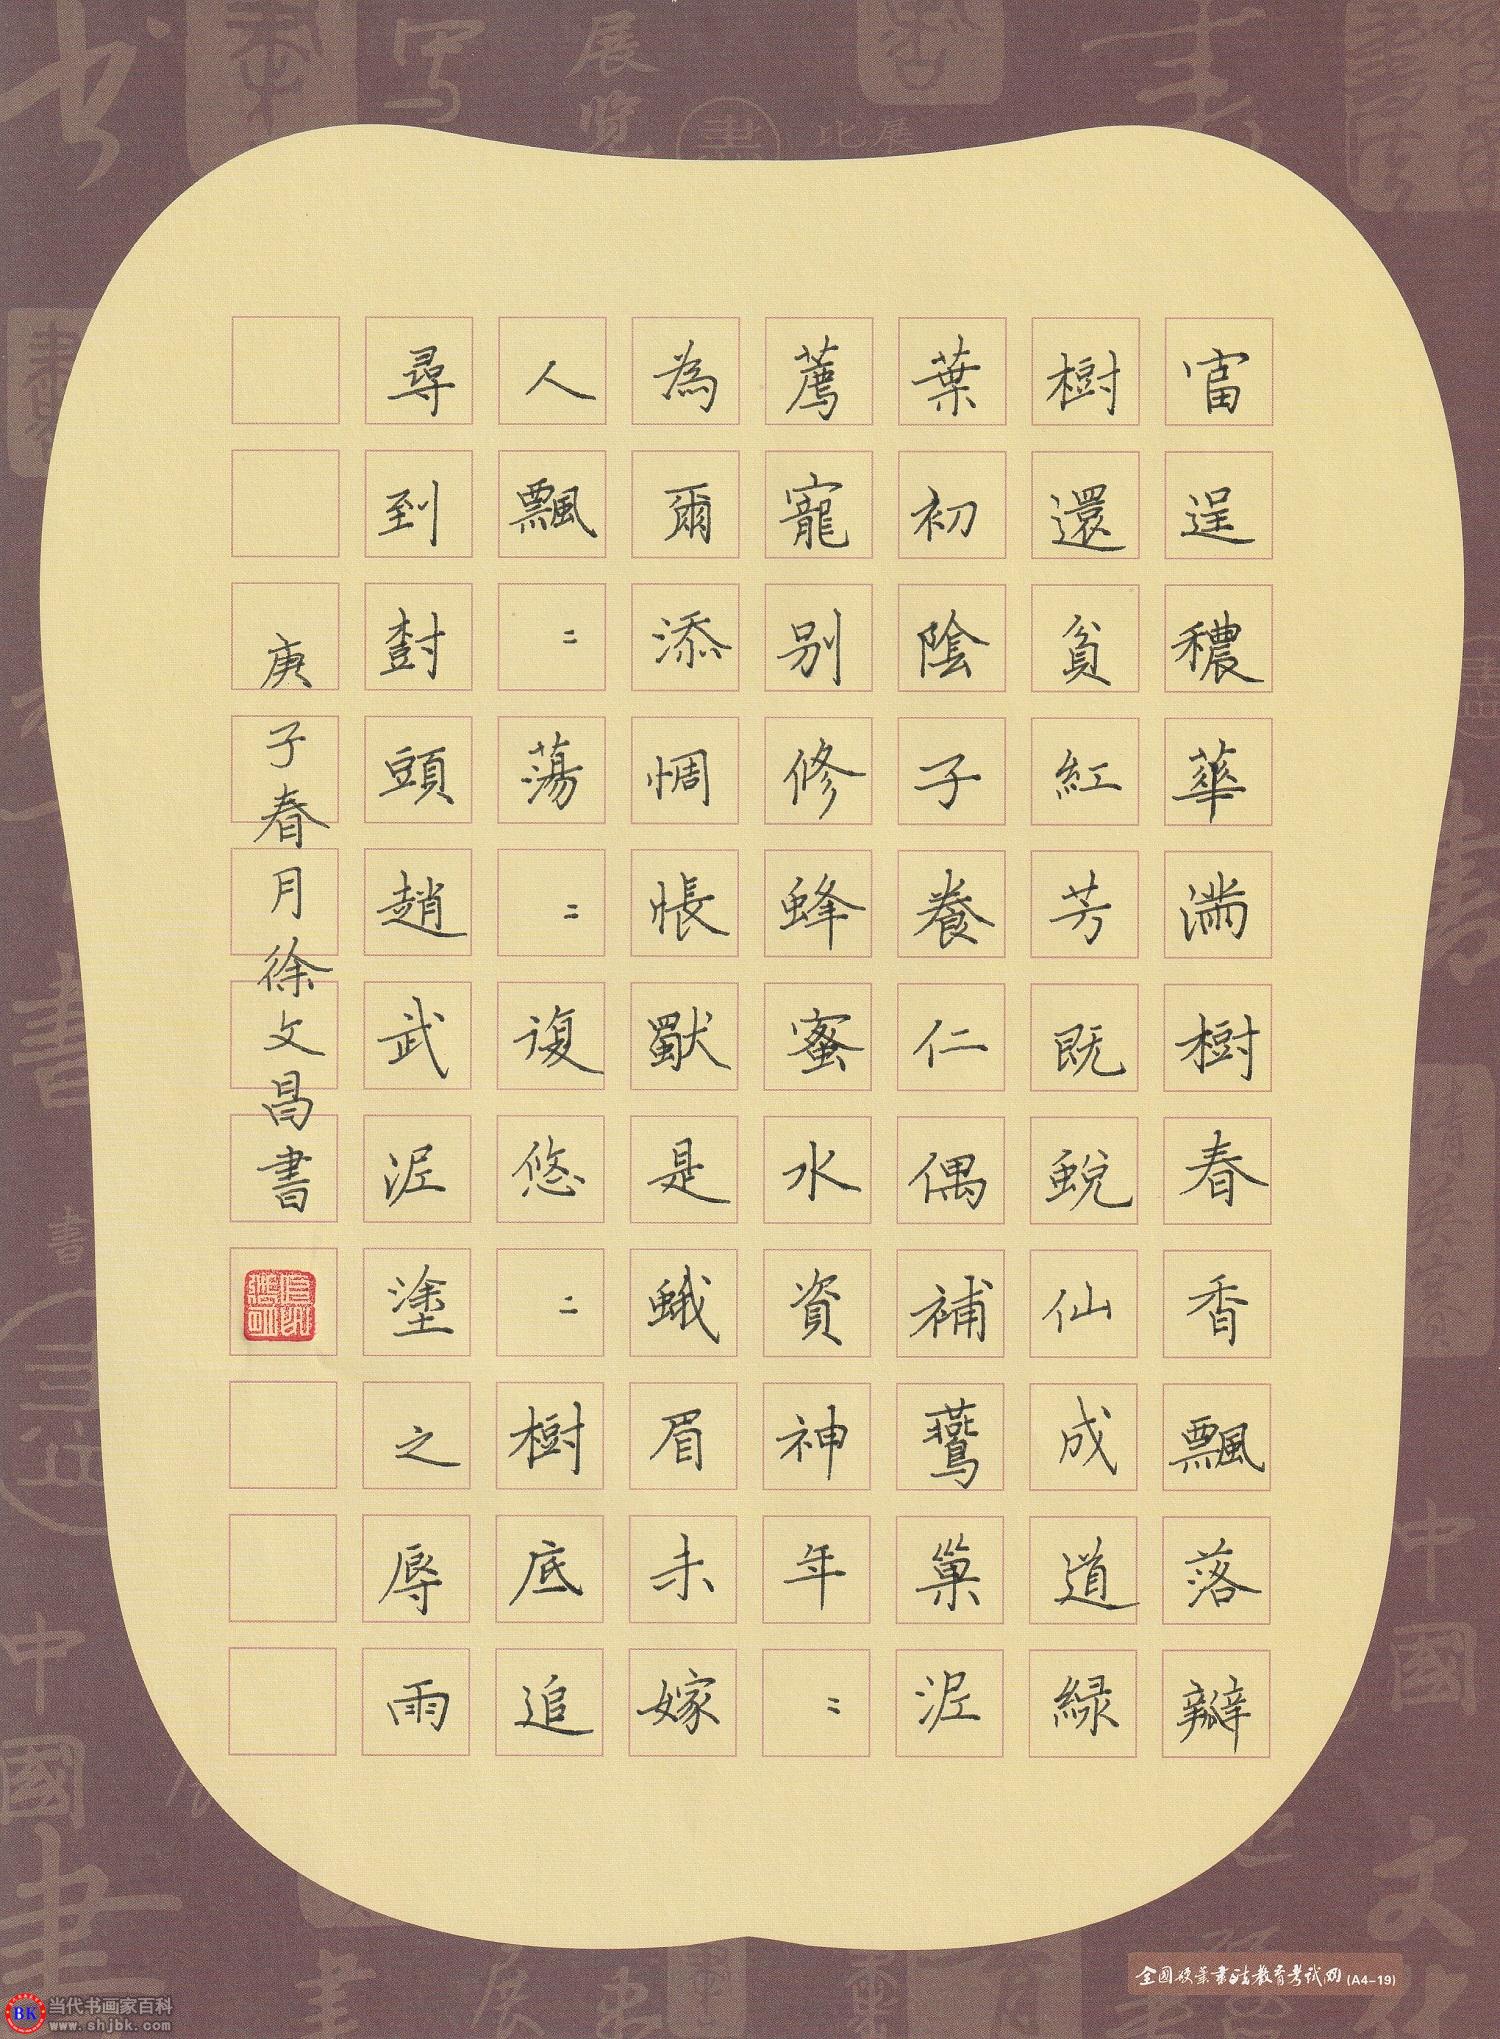 富逞穠華滿樹春香飄落瓣
樹還貧紅芳既蛻仙成道綠
葉初陰子養仁偶補鶯巢泥
薦寵別修蜂蜜水資神年〻
為爾添惆悵獸是蛾眉未嫁
人飄〻蕩〻復悠〻樹底追
尋到尌頭趙武泥塗之辱雨
庚子春月徐文昌書
全國硬筆書法教育考試網(A4-19)
BK 当代书画家百科
www.shjbk.com